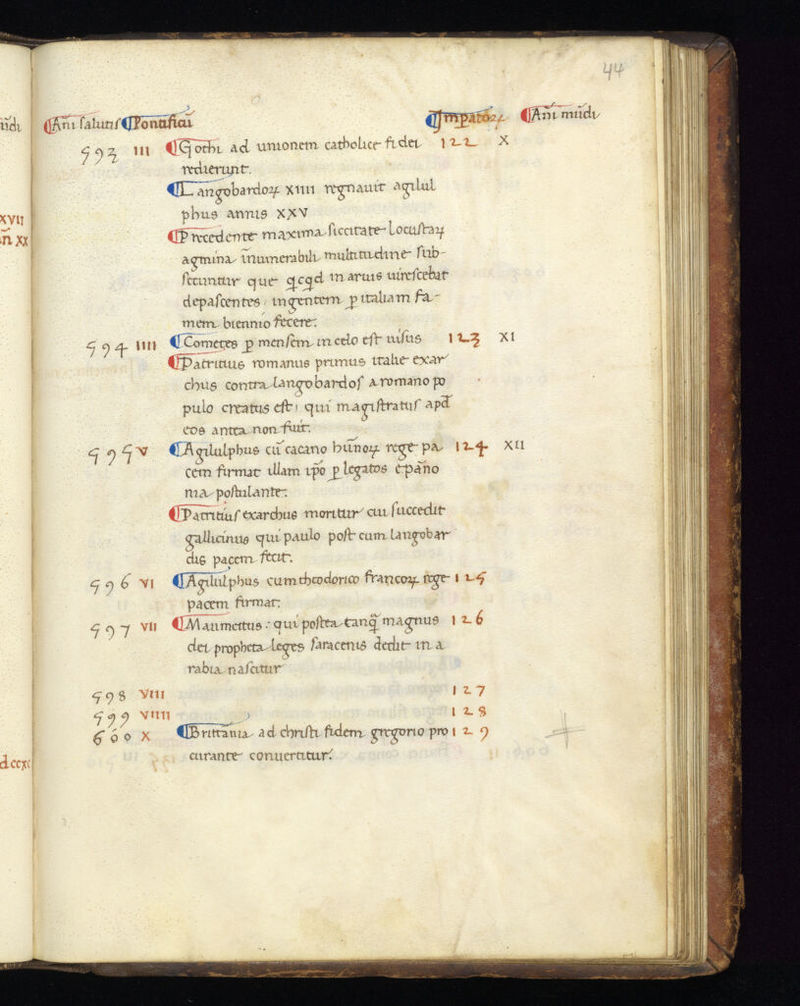 44
Añi salutis Pontificũ Impatoꝝ Añi mũdi
593 III Gothi ad unionem catholice fidei 122 X
redierunt.
Langobardoꝝ XIIII regnauit agilul
phus annis XXV
Precedente maxima siccitate Locustaꝝ
agmina ĩnumerabili multitudine sub-
secuntur que qcqd in aruis uirescebat
depascentes ingentem ꝑ italiam fa-
mem biennio fecere.
594 IIII Cometes ꝑ mensem in celo est uisus 123 XI
Patritius romanus primus italie exar
chus contra langobardos a romano po
pulo creatus est qui magistratus apd̃
eos antea non fuit.
595 V Agilulphus cũ cacano hũnoꝝ rege pa 124 XII
cem firmat illam ip̃o ꝑ legatos ĩ pãno
nia postulante.
Patritius exarchus moritur cui succedit
gallicinus qui paulo post cum langobar
dis pacem fecit.
596 VI Agilulphus cum theodorico francoꝝ rege 125
pacem firmat.
597 VII Maumettus: qui postea tanq̃ magnus 126
dei propheta leges saracenis dedit in a
rabia nascitur
598 VIII 127
599 VIIII 128
600 X Brittania ad christi fidem gregorio pro 129
curante conuertitur.
ũdi
XVII
ñ XX
dccxc